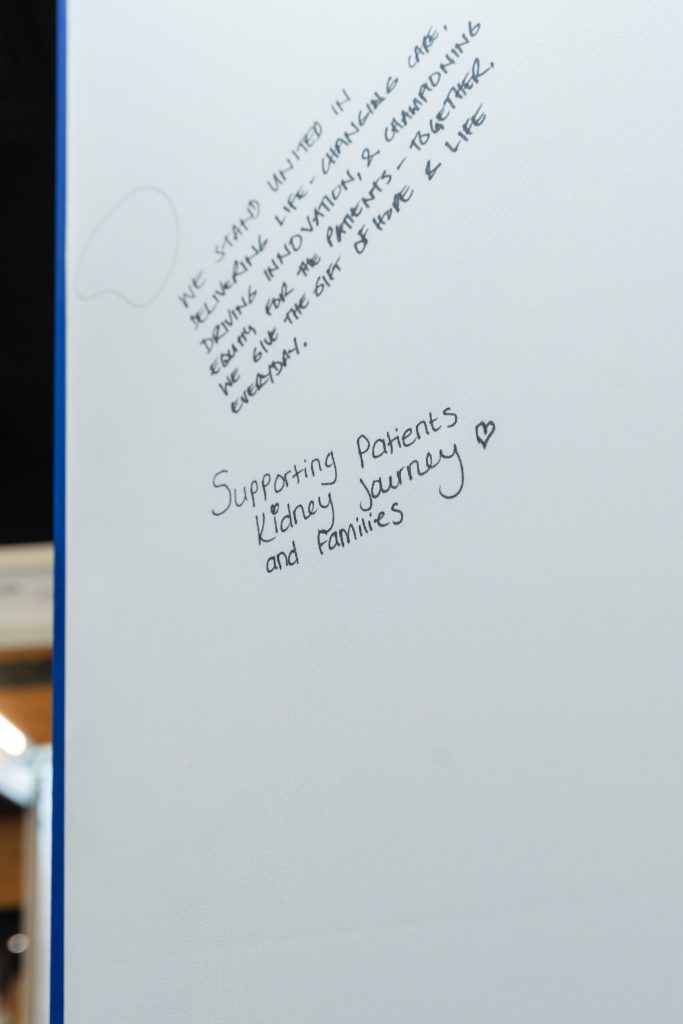 WE STAND UNITED IN
DELIVERING LIFE-CHANGING CARE,
DRIVING INNOVATION, & CHAMPIONING
EQUITY FOR THE PATIENTS - TOGETHER,
WE GIVE THE GIFT OF HOPE & LIFE
EVERYDAY.
Supporting Patients
Kidney Journey ♡
and families